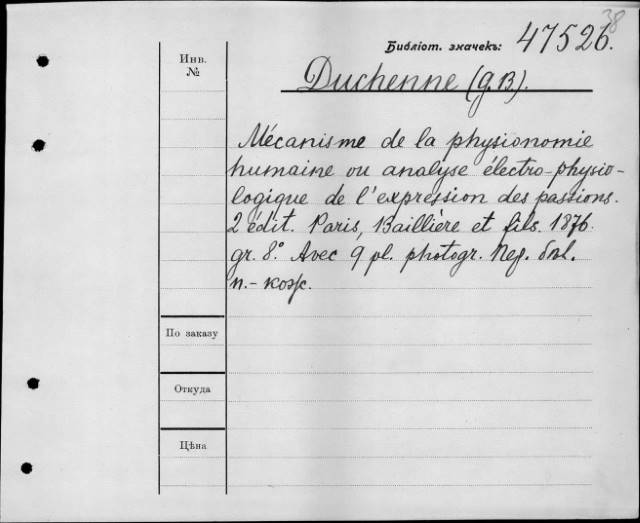 38
Библіот. значекъ: 47526.
Инв.
№
Duchenne (G.B).
Mécanisme de la physionomie
humaine ou analyse électro-physio-
logique de l'expression des passions.
2 édit. Paris, Baillière et fils. 1876.
gr. 8.° Avec 9 pl. photogr. Пер. бзл.
п.-кож.
По заказу
Откуда
Цѣна